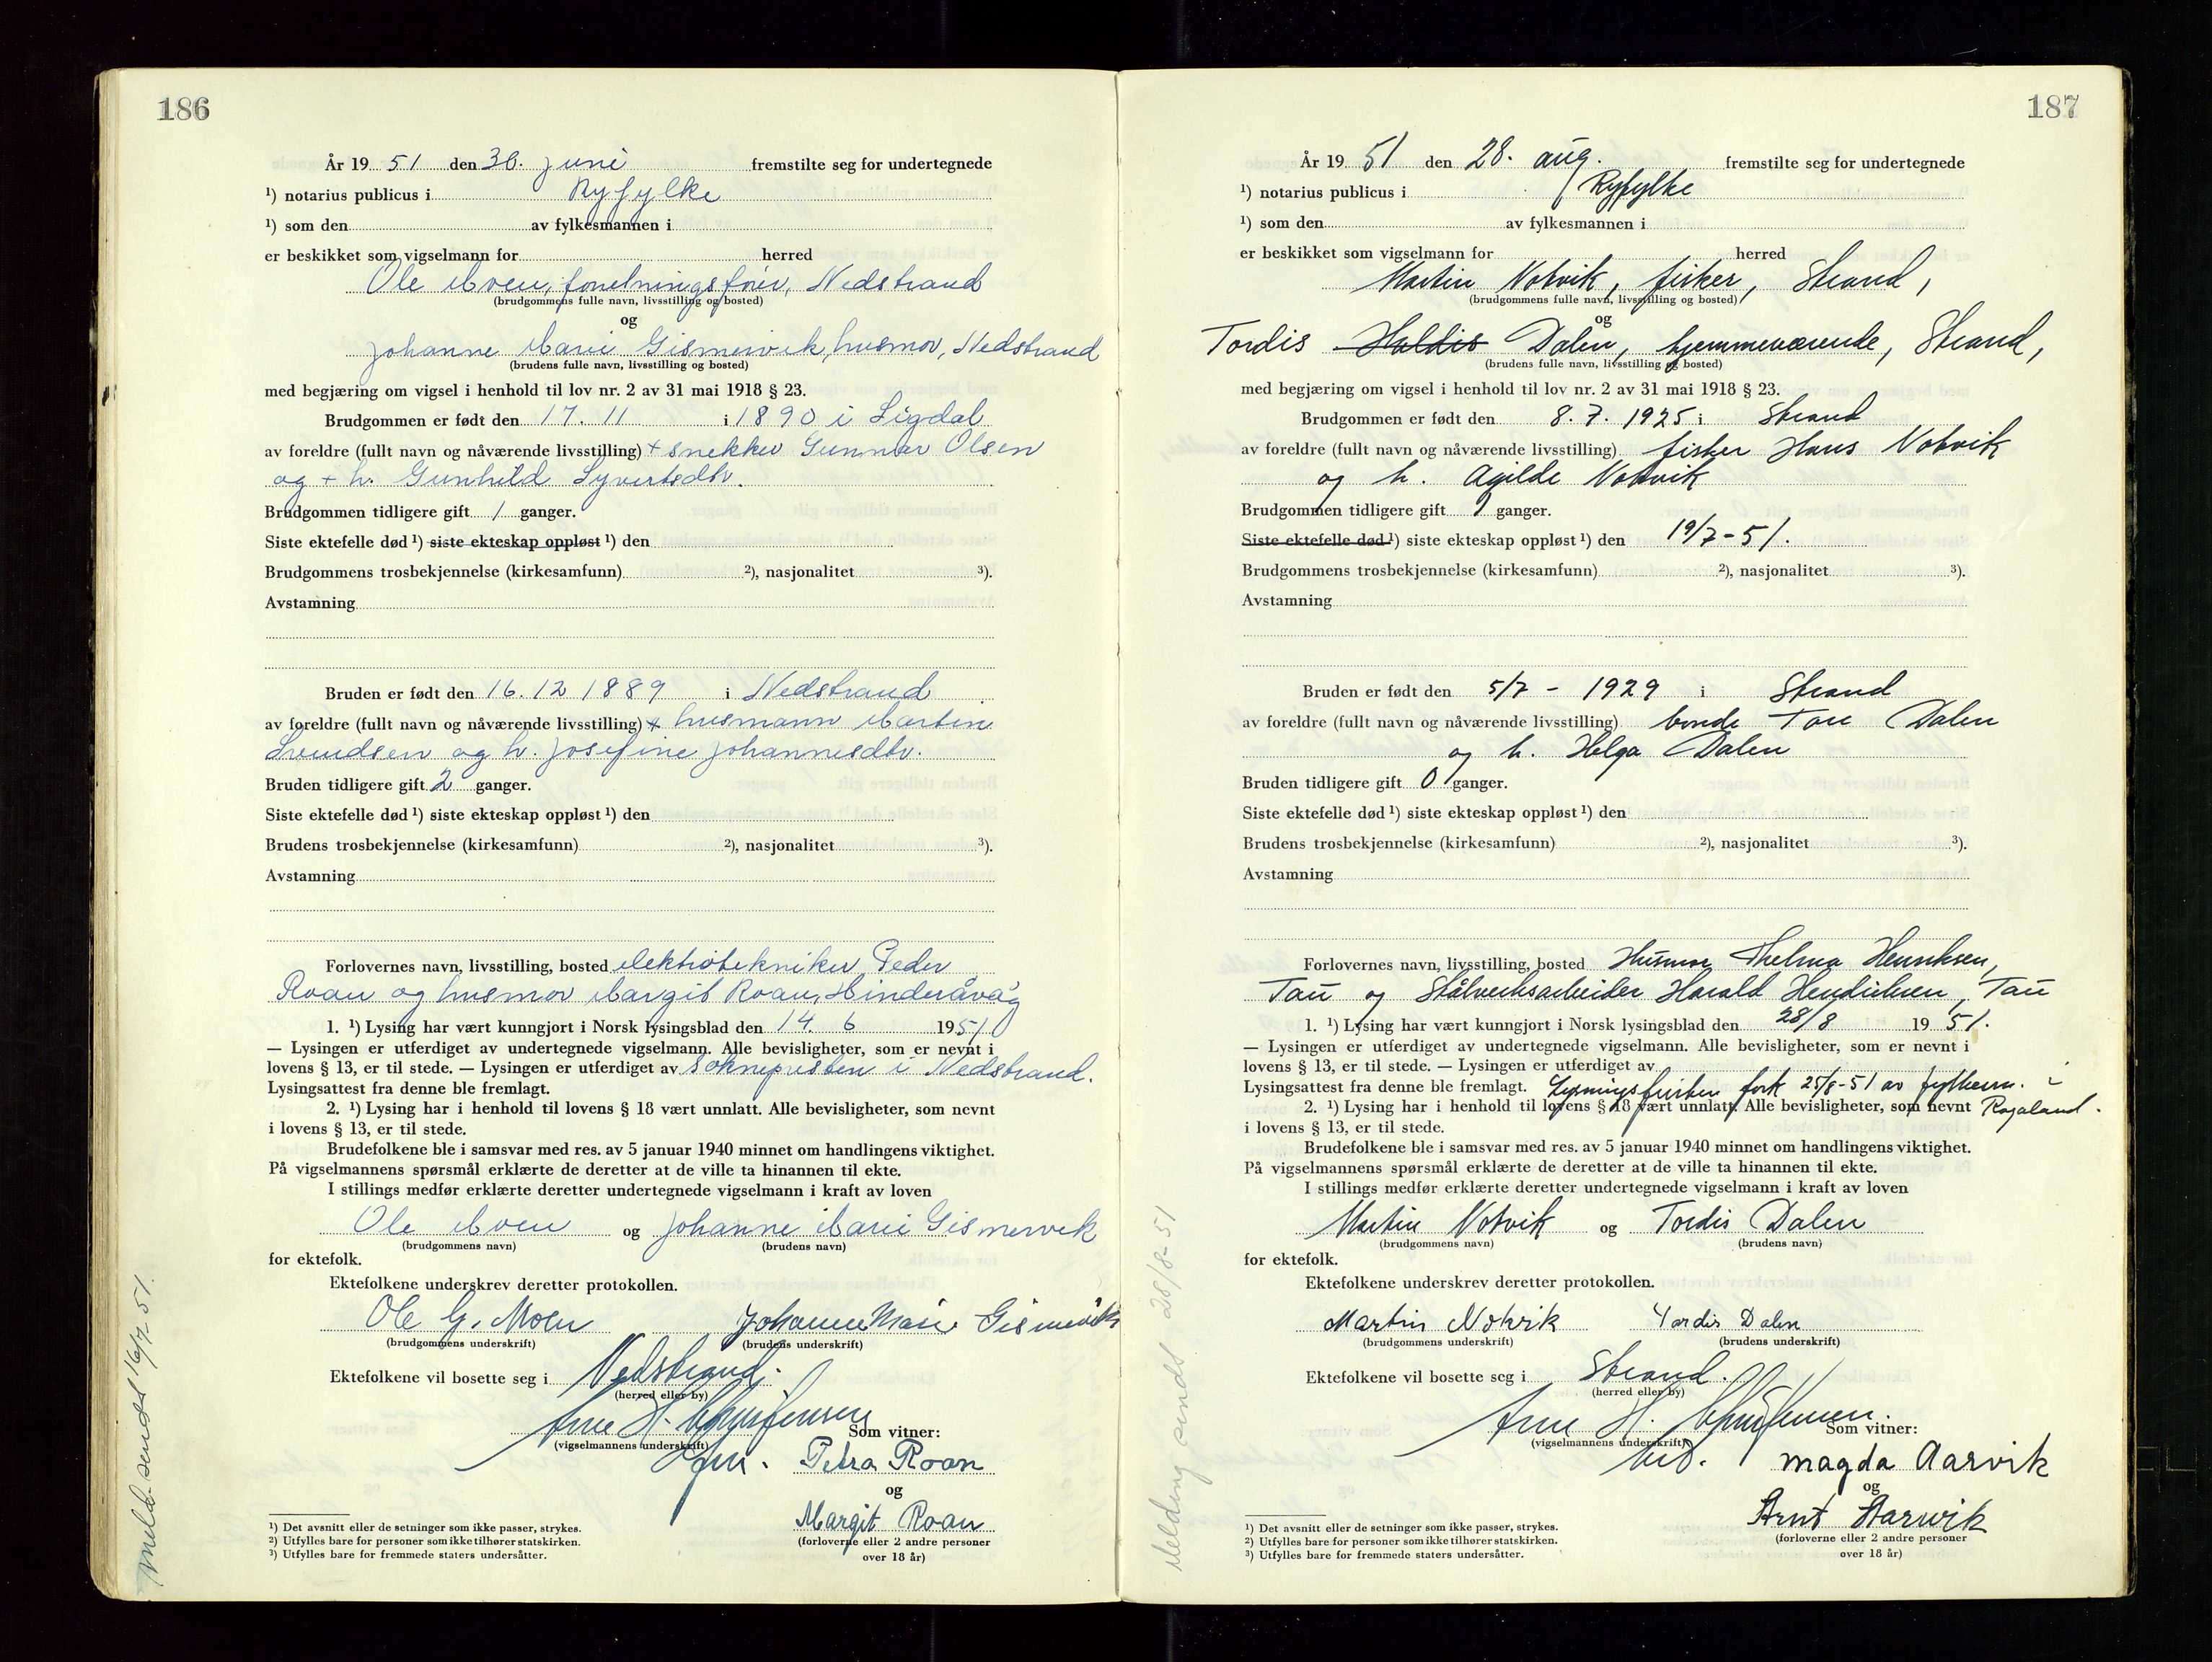 186
År 19 51 den 30. juni fremstilte seg for undertegnede
¹) notarius publicus i Ryfylke
¹) som den av fylkesmannen i
er beskikket som vigselmann for herred
Ole Moen, forretningsfører, Nedstrand
(brudgommens fulle navn, livsstilling og bosted)
og
Johanne Marie Gismervik, husmor, Nedstrand
(brudens fulle navn, livsstilling og bosted)
med begjæring om vigsel i henhold til lov nr. 2 av 31 mai 1918 § 23.
Brudgommen er født den 17. 11 i 1890 i Sigdal
av foreldre (fullt navn og nåværende livsstilling) + snekker Gunnar Olsen
og + h. Gunhild Syvertsdtr.
Brudgommen tidligere gift 1 ganger.
Siste ektefelle død ¹) siste ekteskap oppløst ¹) den
Brudgommens trosbekjennelse (kirkesamfunn) ²), nasjonalitet ³).
Avstamning
Bruden er født den 16. 12 1889 i Nedstrand
av foreldre (fullt navn og nåværende livsstilling) + husmann Marten
Svendsen og h. Josefine Johannesdtr.
Bruden tidligere gift 2 ganger.
Siste ektefelle død ¹) siste ekteskap oppløst ¹) den
Brudens trosbekjennelse (kirkesamfunn) ²), nasjonalitet ³).
Avstamning
Forlovernes navn, livsstilling, bosted elektrotekniker Peder
Roan og husmor Margit Roan, Hinderåvåg
1. ¹) Lysing har vært kunngjort i Norsk lysingsblad den 14. 6 1951
— Lysingen er utferdiget av undertegnede vigselmann. Alle bevisligheter, som er nevnt i
lovens § 13, er til stede. — Lysingen er utferdiget av soknepresten i Nedstrand.
Lysingsattest fra denne ble fremlagt.
2. ¹) Lysing har i henhold til lovens § 18 vært unnlatt. Alle bevisligheter, som nevnt
i lovens § 13, er til stede.
Brudefolkene ble i samsvar med res. av 5 januar 1940 minnet om handlingens viktighet.
På vigselmannens spørsmål erklærte de deretter at de ville ta hinannen til ekte.
I stillings medfør erklærte deretter undertegnede vigselmann i kraft av loven
Ole Moen og Johanne Marie Gismervik
(brudgommens navn) (brudens navn)
for ektefolk.
Ektefolkene underskrev deretter protokollen.
Ole G. Moen Johanne Marie Gismervik
(brudgommens underskrift) (brudens underskrift)
Ektefolkene vil bosette seg i Nedstrand.
(herred eller by)
Arne H. Christensen
Som vitner:
(vigselmannens underskrift)
Petra Roan
og
Margit Roan
(forloverne eller 2 andre personer
over 18 år)
¹) Det avsnitt eller de setninger som ikke passer, strykes.
²) Utfylles bare for personer som ikke tilhører statskirken.
³) Utfylles bare for fremmede staters undersåtter.
Meld. sendt 16/7-51.
187
År 19 51 den 28. aug. fremstilte seg for undertegnede
¹) notarius publicus i Ryfylke
¹) som den av fylkesmannen i
er beskikket som vigselmann for herred
Martin Notvik, fisker, Strand,
(brudgommens fulle navn, livsstilling og bosted)
og
Tordis Haldis Dalen, hjemmeværende, Strand,
(brudens fulle navn, livsstilling og bosted)
med begjæring om vigsel i henhold til lov nr. 2 av 31 mai 1918 § 23.
Brudgommen er født den 8. 7. 1925 i Strand
av foreldre (fullt navn og nåværende livsstilling) fisker Hans Notvik
og h. Agilde Notvik
Brudgommen tidligere gift 1 ganger.
Siste ektefelle død ¹) siste ekteskap oppløst ¹) den 19/7-51.
Brudgommens trosbekjennelse (kirkesamfunn) ²), nasjonalitet ³).
Avstamning
Bruden er født den 5/7 - 1929 i Strand
av foreldre (fullt navn og nåværende livsstilling) bonde Tore Dalen
og h. Helga Dalen
Bruden tidligere gift 0 ganger.
Siste ektefelle død ¹) siste ekteskap oppløst ¹) den
Brudens trosbekjennelse (kirkesamfunn) ²), nasjonalitet ³).
Avstamning
Forlovernes navn, livsstilling, bosted Husmor Thelma Henriksen,
Tau og Stålverksarbeider Harald Hendriksen, Tau
1. ¹) Lysing har vært kunngjort i Norsk lysingsblad den 28/8 19 51.
— Lysingen er utferdiget av undertegnede vigselmann. Alle bevisligheter, som er nevnt i
lovens § 13, er til stede. — Lysingen er utferdiget av
Lysingsattest fra denne ble fremlagt. Lysningsfristen fork. 25/8-51 av fylkesm. i
2. ¹) Lysing har i henhold til lovens § 18 vært unnlatt. Alle bevisligheter, som nevnt Rogaland.
i lovens § 13, er til stede.
Brudefolkene ble i samsvar med res. av 5 januar 1940 minnet om handlingens viktighet.
På vigselmannens spørsmål erklærte de deretter at de ville ta hinannen til ekte.
I stillings medfør erklærte deretter undertegnede vigselmann i kraft av loven
Martin Notvik og Tordis Dalen
(brudgommens navn) (brudens navn)
for ektefolk.
Ektefolkene underskrev deretter protokollen.
Martin Notvik Tordis Dalen
(brudgommens underskrift) (brudens underskrift)
Ektefolkene vil bosette seg i Strand.
(herred eller by)
Arne H. Christensen
Som vitner:
(vigselmannens underskrift)
Magda Aarvik
og
Arnt Aarvik
(forloverne eller 2 andre personer
over 18 år)
¹) Det avsnitt eller de setninger som ikke passer, strykes.
²) Utfylles bare for personer som ikke tilhører statskirken.
³) Utfylles bare for fremmede staters undersåtter.
Melding sendt 28/8-51